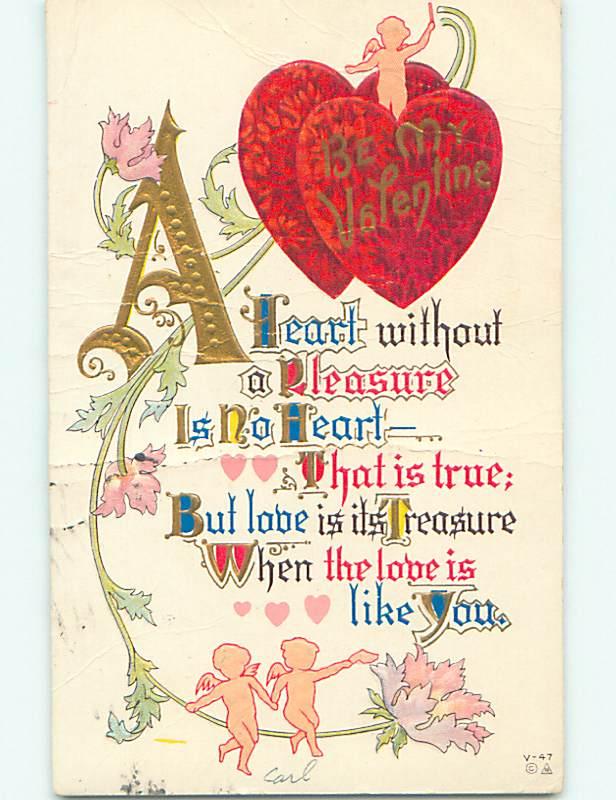 Be My
Valentine
A Heart without
a Pleasure
Is No Heart—
That is true;
But love is its Treasure
When the love is
like You.
Carl
V-47
©